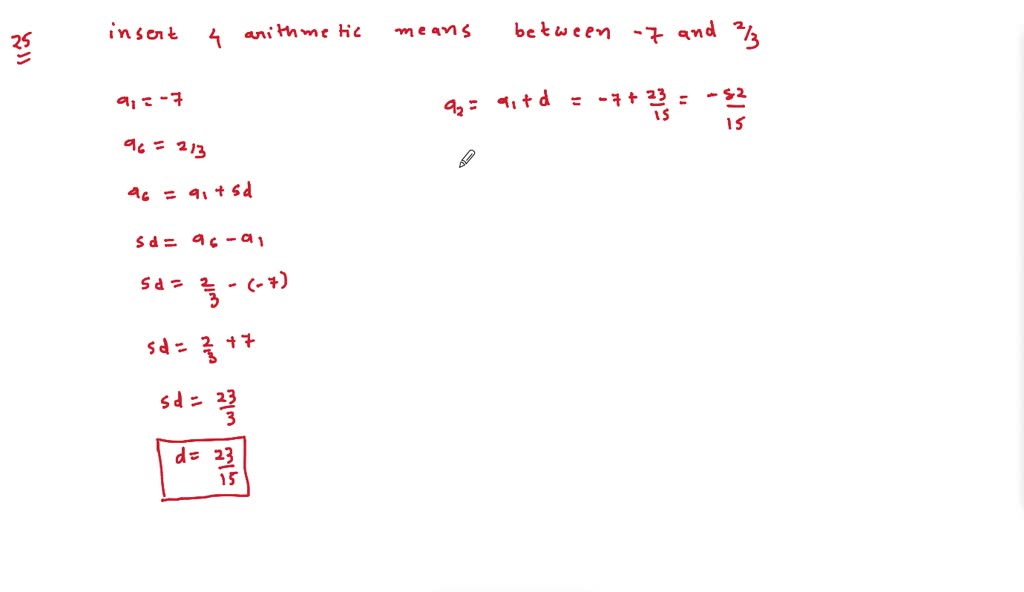 25
insert 4 arithmetic means between -7 and 2/3
a₁ = -7
a₆ = 2/3
a₆ = a₁ + 5d
5d = a₆ - a₁
5d = 2/3 - (-7)
5d = 2/3 + 7
5d = 23/3
d = 23/15
a₂ = a₁ + d = -7 + 23/15 = -82/15